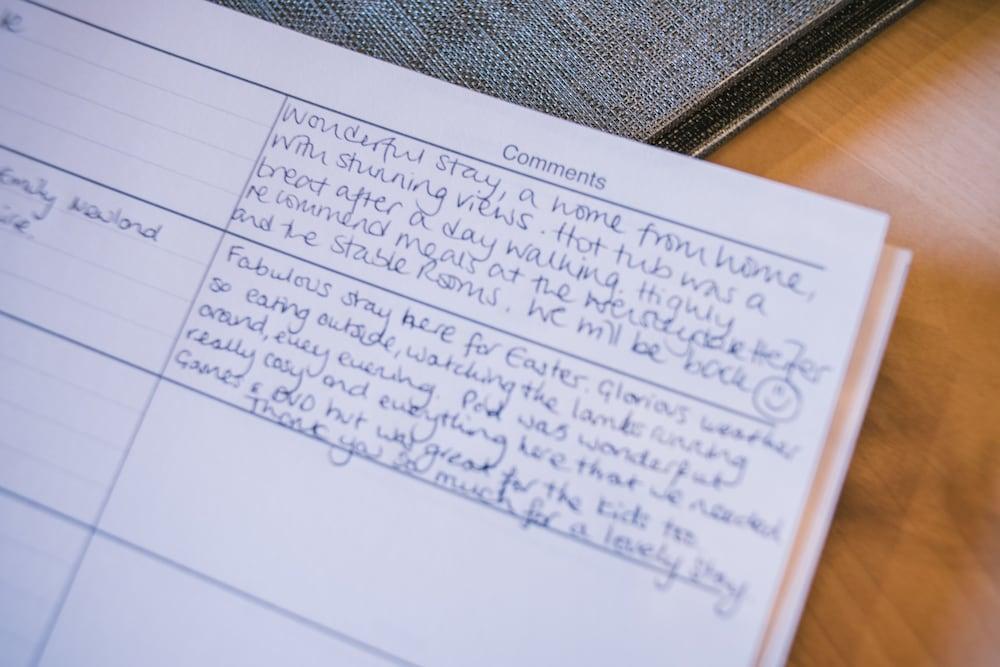 Comments
Wonderful stay, a home from home,
with stunning views. Hot tub was a
great after a day walking. Highly
recommend meals at the
and the Stable Rooms. We will be back
Emily Newland
Fabulous stay here for Easter. Glorious weather
so eating outside, watching the lambs running
around, every evening. Pod was wonderful
really cosy and everything here that we needed
Games & DVD hut was great for the kids too
Thank you so much for a lovely stay